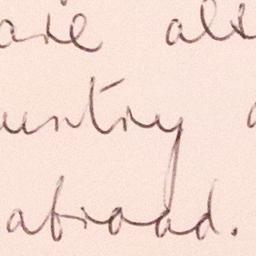 are als
untry
abroad.